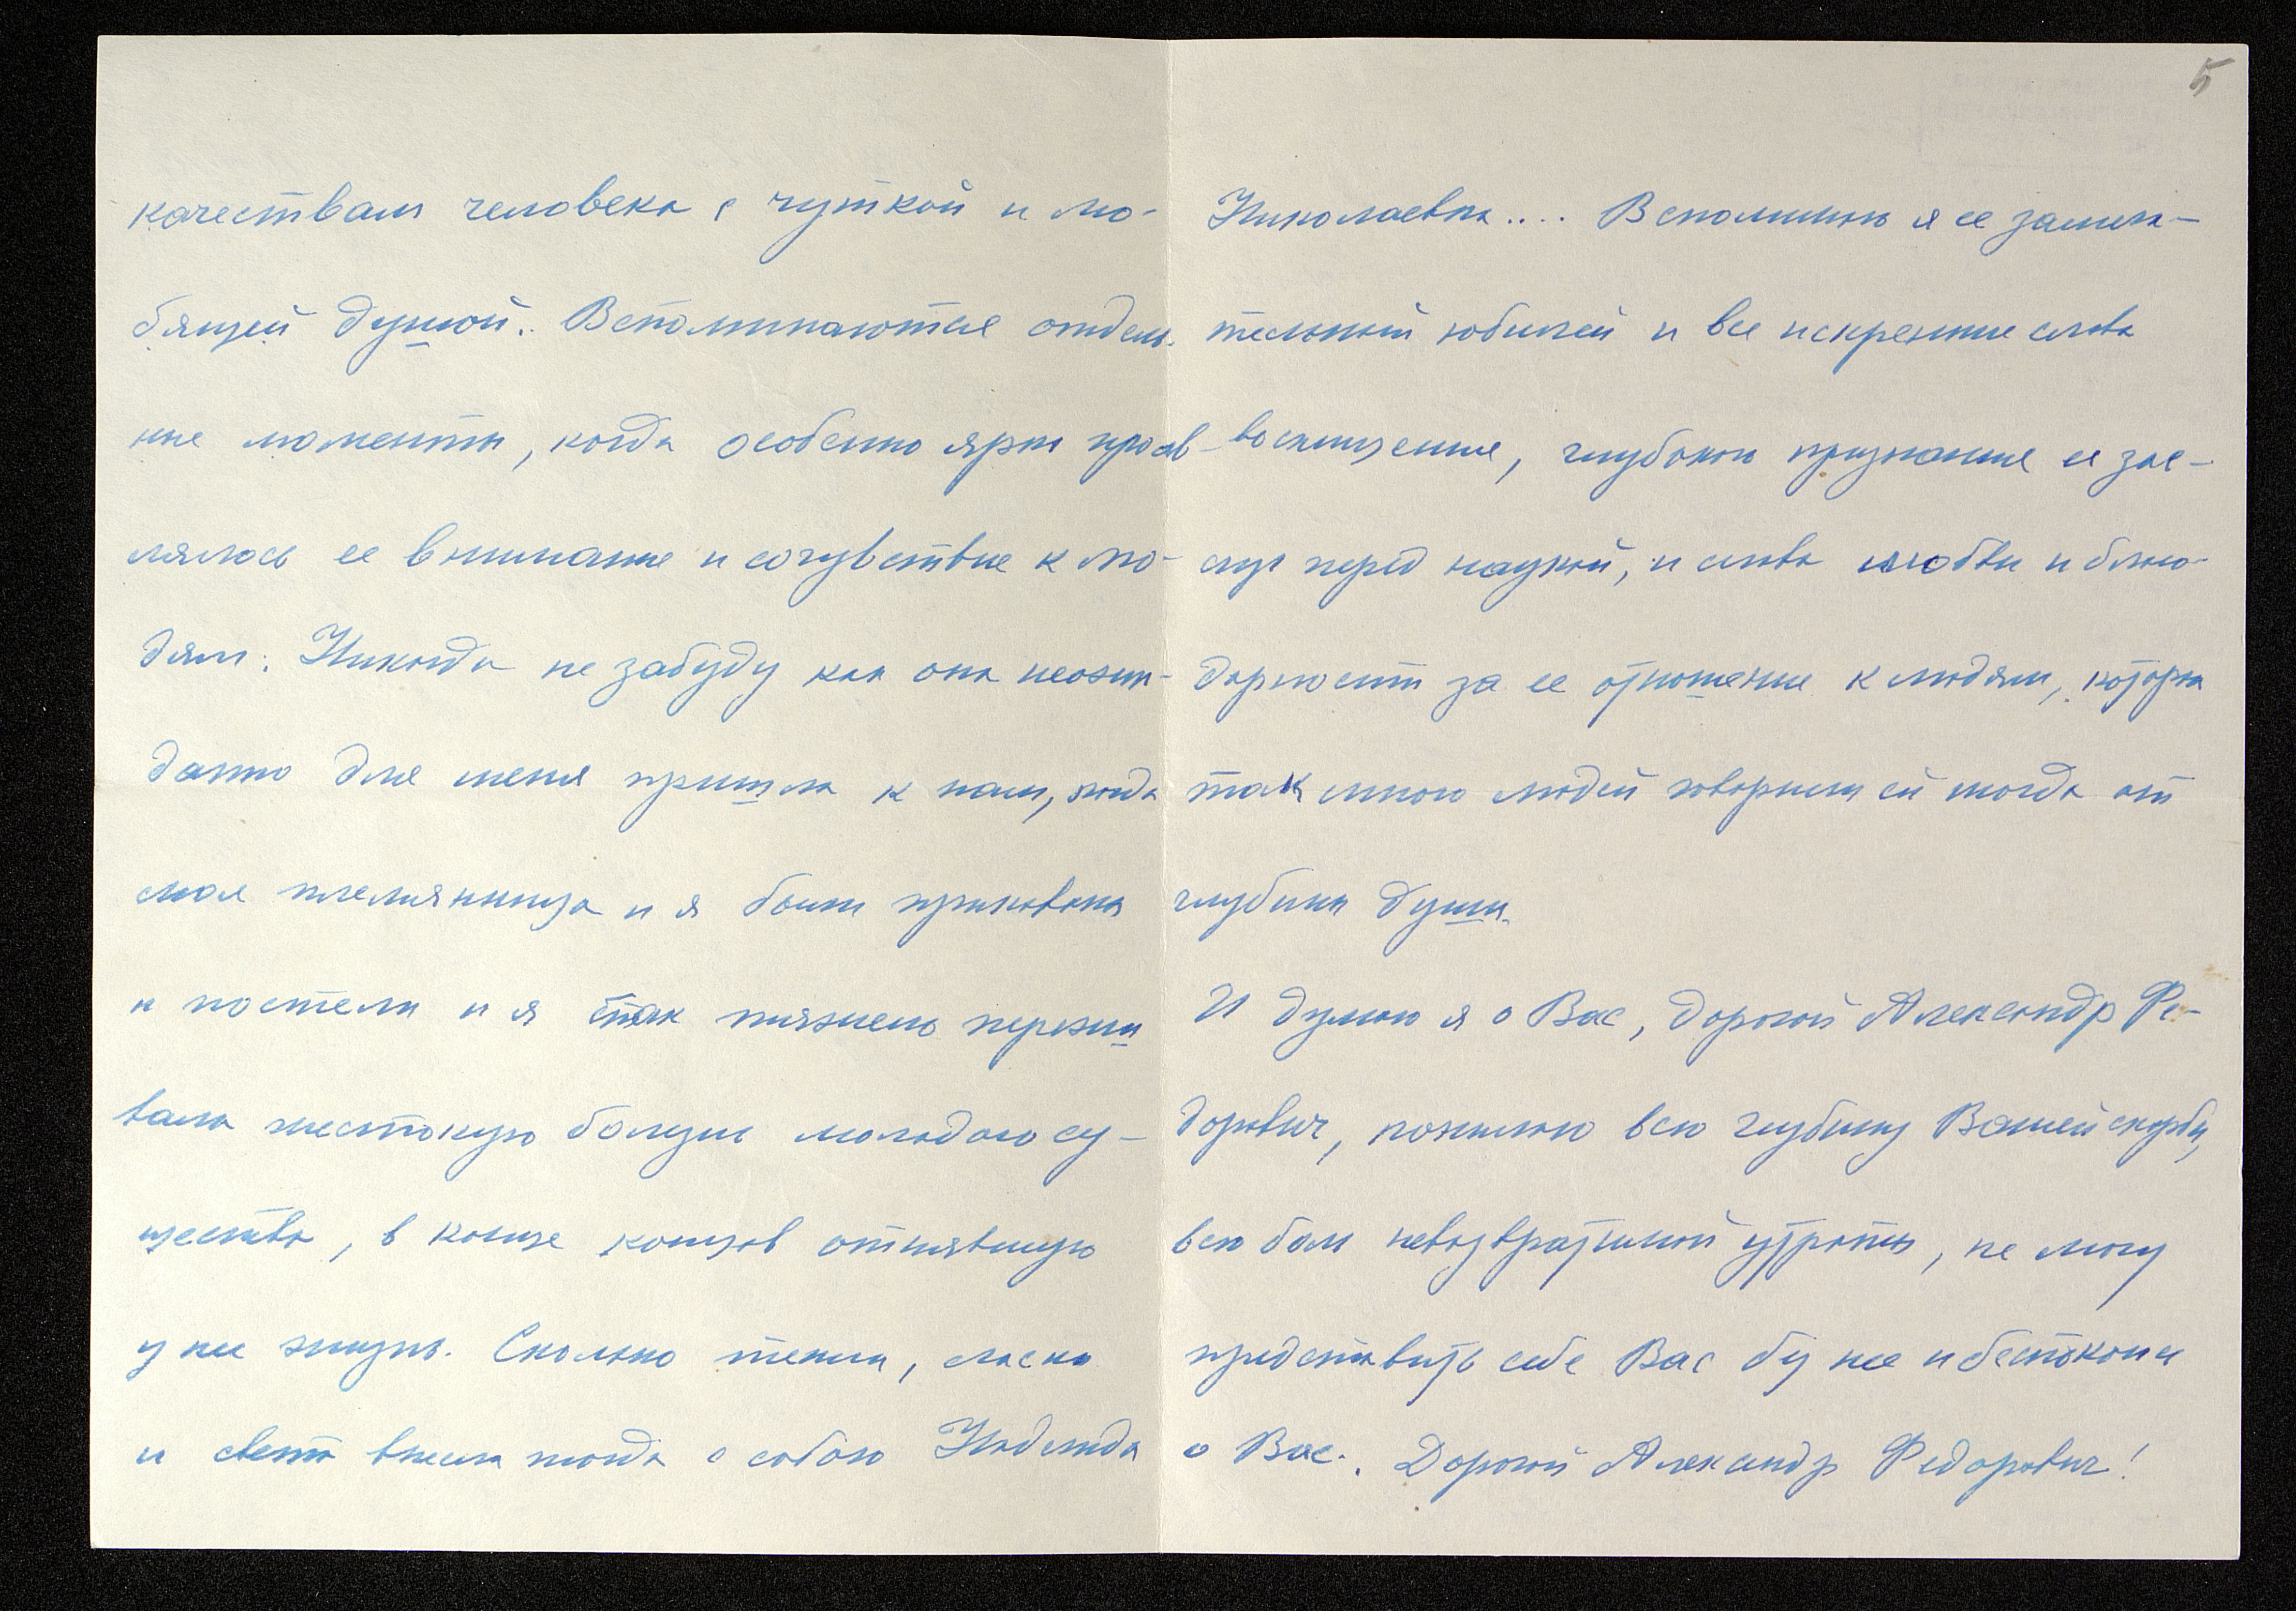 5
качествам человека с чуткой и лю-
бящей душой. Вспоминаются отдель-
ные моменты, когда особенно ярко прояв-
лялось ее внимание и сочувствие к лю-
дям. Никогда не забуду как она неожи-
данно для меня пришла к нам, когда
моя племянница и я были прикованы
к постели и я так тяжело пережи
вала жестокую болезнь молодого су-
щества, в конце концов отнявшую
у нее жизнь. Сколько тепла, ласки
и света внесла тогда с собою Надежда
Николаевна.... Вспоминаю я ее замеча-
тельный юбилей и все искренние слова
восхищения, глубокого признания ее зас-
луг перед наукой, и слова любви и благо-
дарности за ее отношение к людям, которые
так много людей говорили ей тогда от
глубины души.
И думаю я о Вас, дорогой Александр Фе-
дорович, понимаю всю глубину Вашей скорби,
всю боль невозвратимой утраты, не могу
представить себе Вас без нее и беспокоюсь
о Вас. Дорогой Александр Федорович!